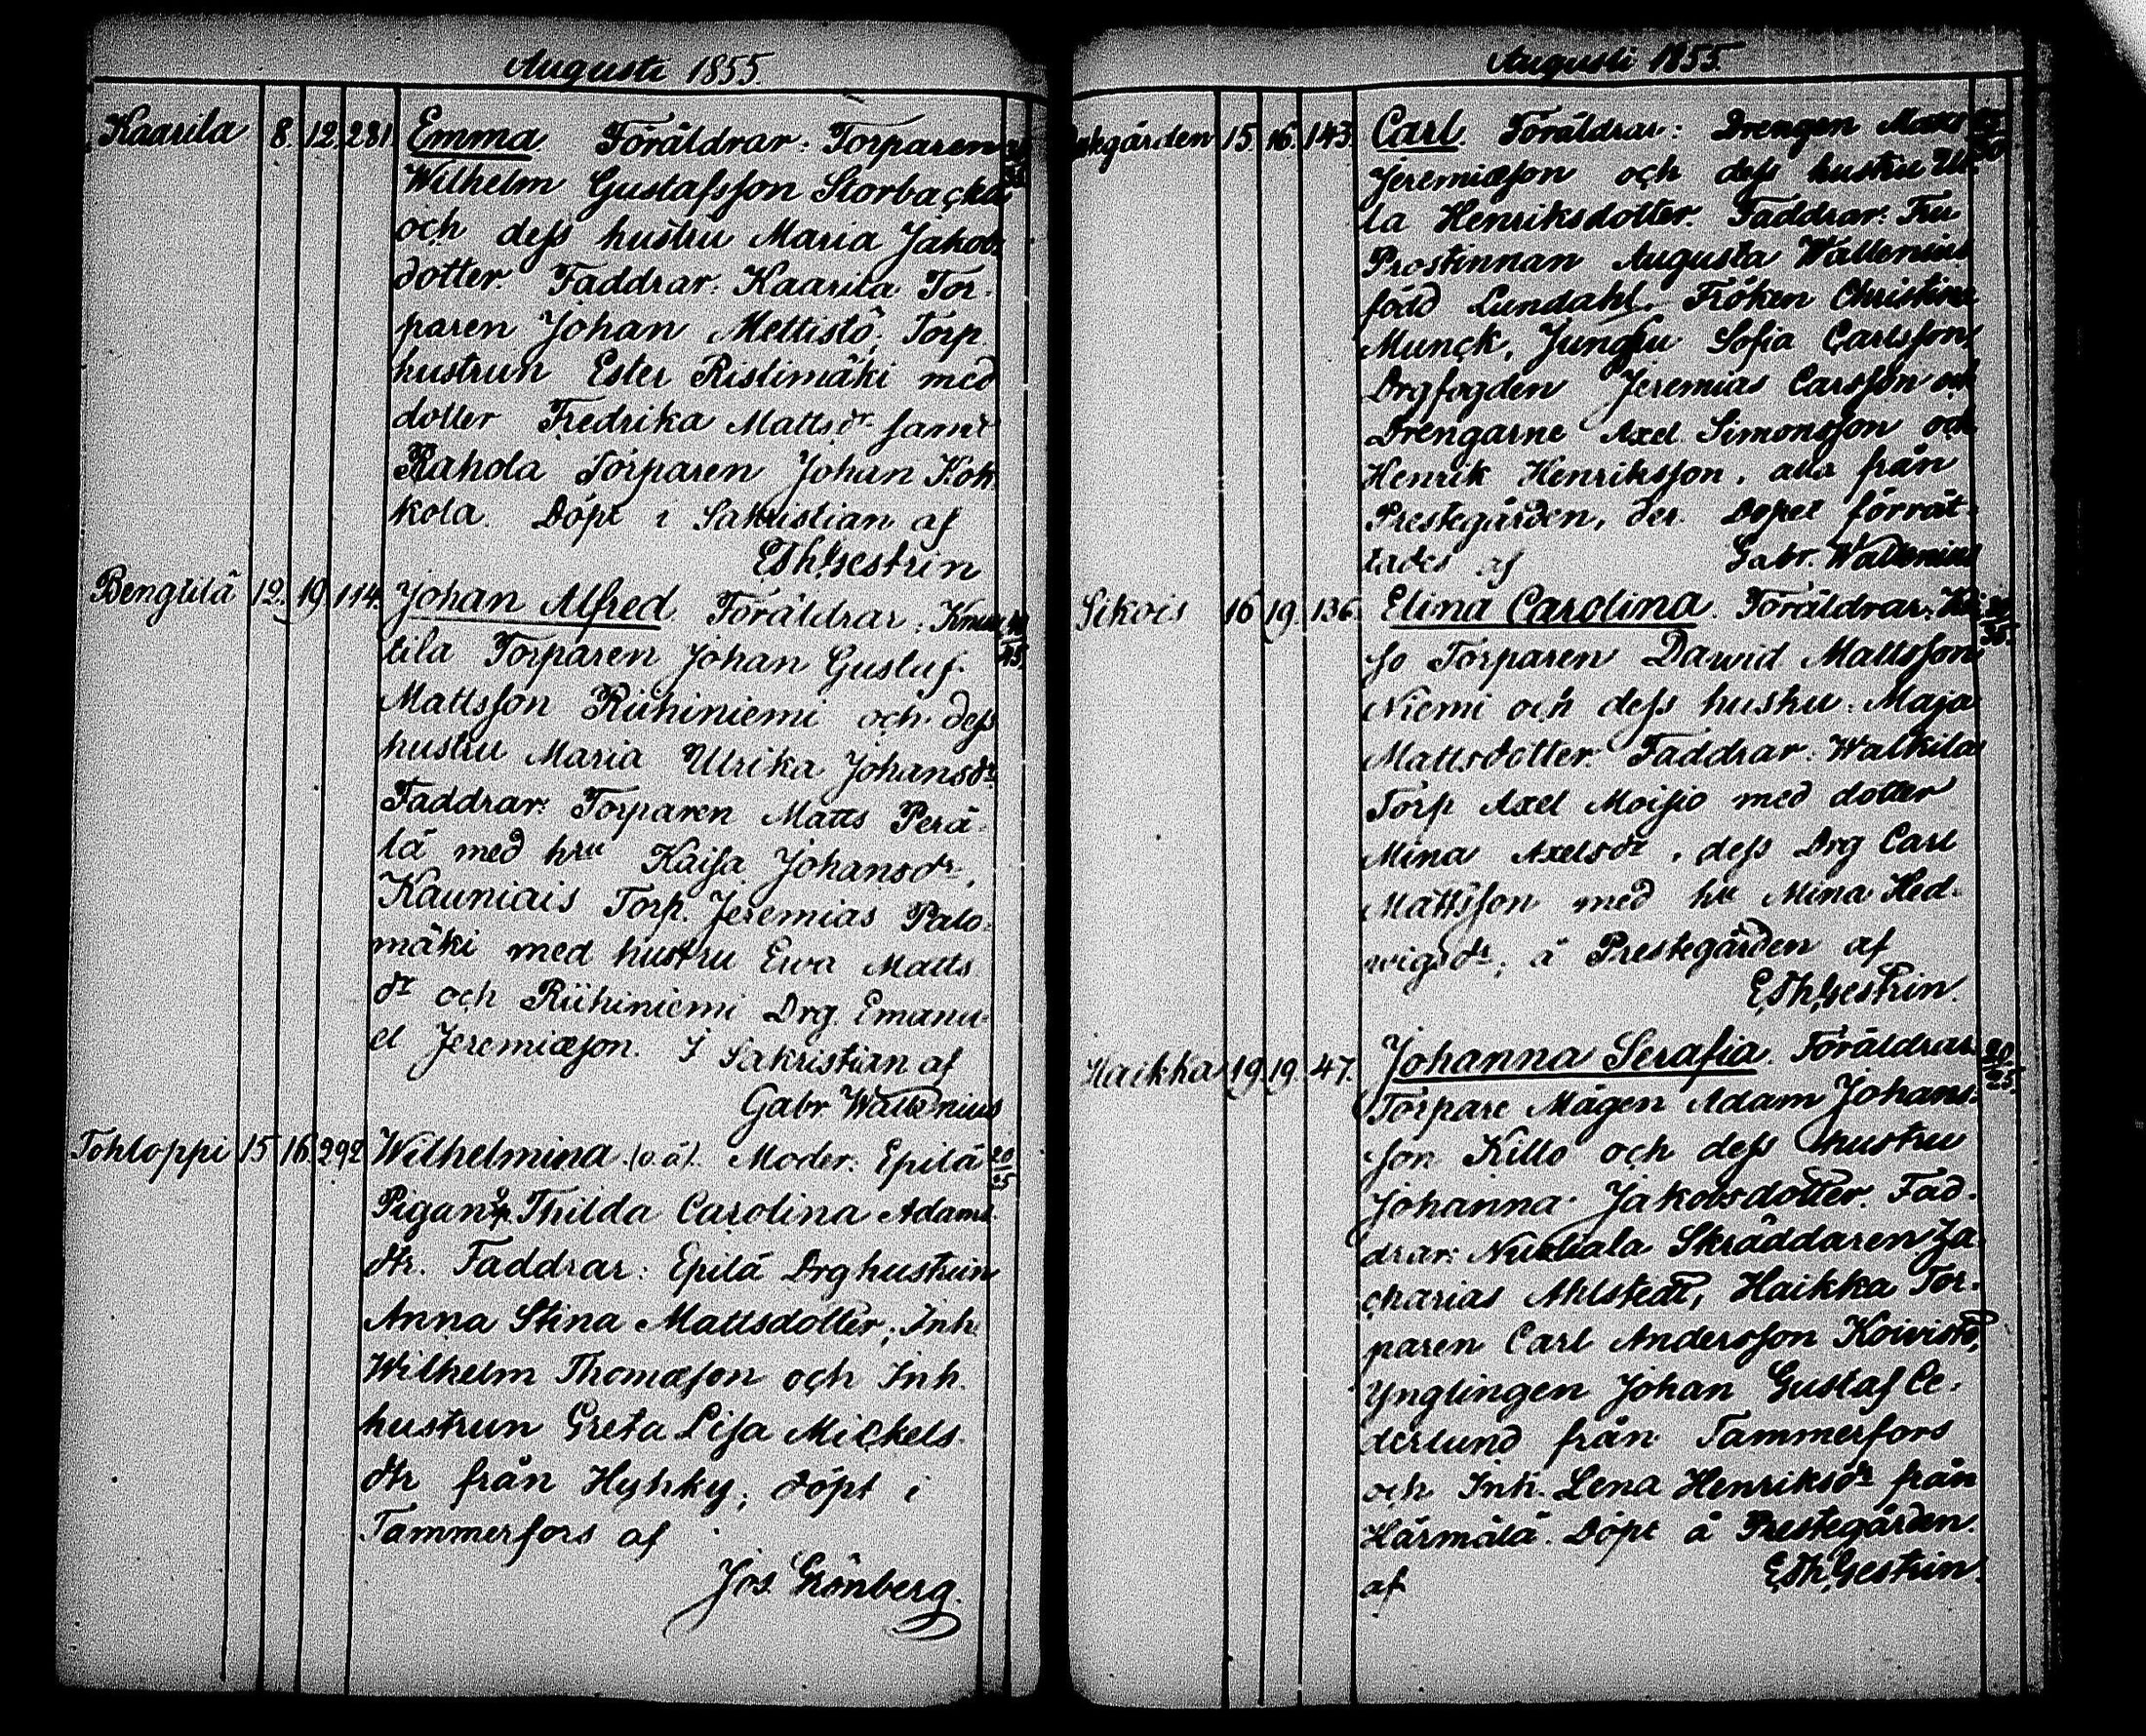 Augusti 1855.
Kaarila 8. 12. 281. Emma Föräldrar: Torparen
Wilhelm Gustafsson Storbacka
och dess hustru Maria Jakobs
dotter. Faddrar: Kaarila Tor-
paren Johan Mettistö; Torp.
hustrun Ester Ristimäki med
dotter Fredrika Mattsdr samt
Rahola Torparen Johan Kok
kola. Döpt i Sakristian af
E Th Gestrin
Bengtilä 12. 19. 114. Johan Alfred Föräldrar: Knuu
tila Torparen Johan Gustaf
Mattsson Riihiniemi och dess
hustru Maria Ulrika Johansdr
Faddrar: Torparen Matts Perä-
lä med hru Kaisa Johansdr,
Kauniais Torp. Jeremias Palo-
mäki med hustru Ewa Matts
dr och Riihiniemi Drg. Emanu-
el Jeremiæson. I Sakristian af
Gabr Wallenius
Tohloppi 15 16. 292 Wilhelmina (o. ä). Moder: Epilä 20/25
Pigan Thilda Carolina Adams-
dtr. Faddrar: Epilä Drghustrun
Anna Stina Mattsdotter, Inh.
Wilhelm Thomæson och Inh.
hustrun Greta Lisa Mickels-
dtr från Hyhky; döpt i
Tammerfors af
Jos. Grönberg.
Augusti 1855.
15 16. 143. Carl. Föräldrar: Drengen Matts
Jeremiæson och dess hustru Ul-
la Henriksdotter. Faddrar: Fru
Prostinnan Augusta Wallenius
född Lundahl, Fröken Christina
Munck, Jungfru Sofia Carlsson,
Drgfogden Jeremias Carsson och
Drengarne Axel Simonsson och
Henrik Henriksson, alla från
Prestegården, der Dopet förrät-
tades af Gabr. Wallenius
Sikois 16 19. 136. Elina Carolina. Föräldrar:
so Torparen Dawid Mattsson
Niemi och dess hustru Maja
Mattsdotter. Faddrar: Walkila
Torp Axel Moisio med dotter
Mina Axelsdr, dess Drg Carl
Mattsson med hu Mina Hed-
wigsdr; å Prestegården af
E Th Gestrin.
Haikka 19 19. 47. Johanna Serafia. Föräldrar 20/25.
Torpare Mågen Adam Johans-
son Killo och dess hustru
Johanna Jakobsdotter. Fad-
drar: Skräddaren Za-
charias Ahlstedt, Haikka Tor-
paren Carl Andersson Koivisto,
Ynglingen Johan Gustaf Ce-
derlund från Tammerfors
och Inh. Lena Henriksdr från
Härmälä. Döpt å Prestegården.
af E Th Gestrin.